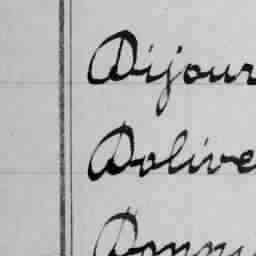 Dijour
Dolive